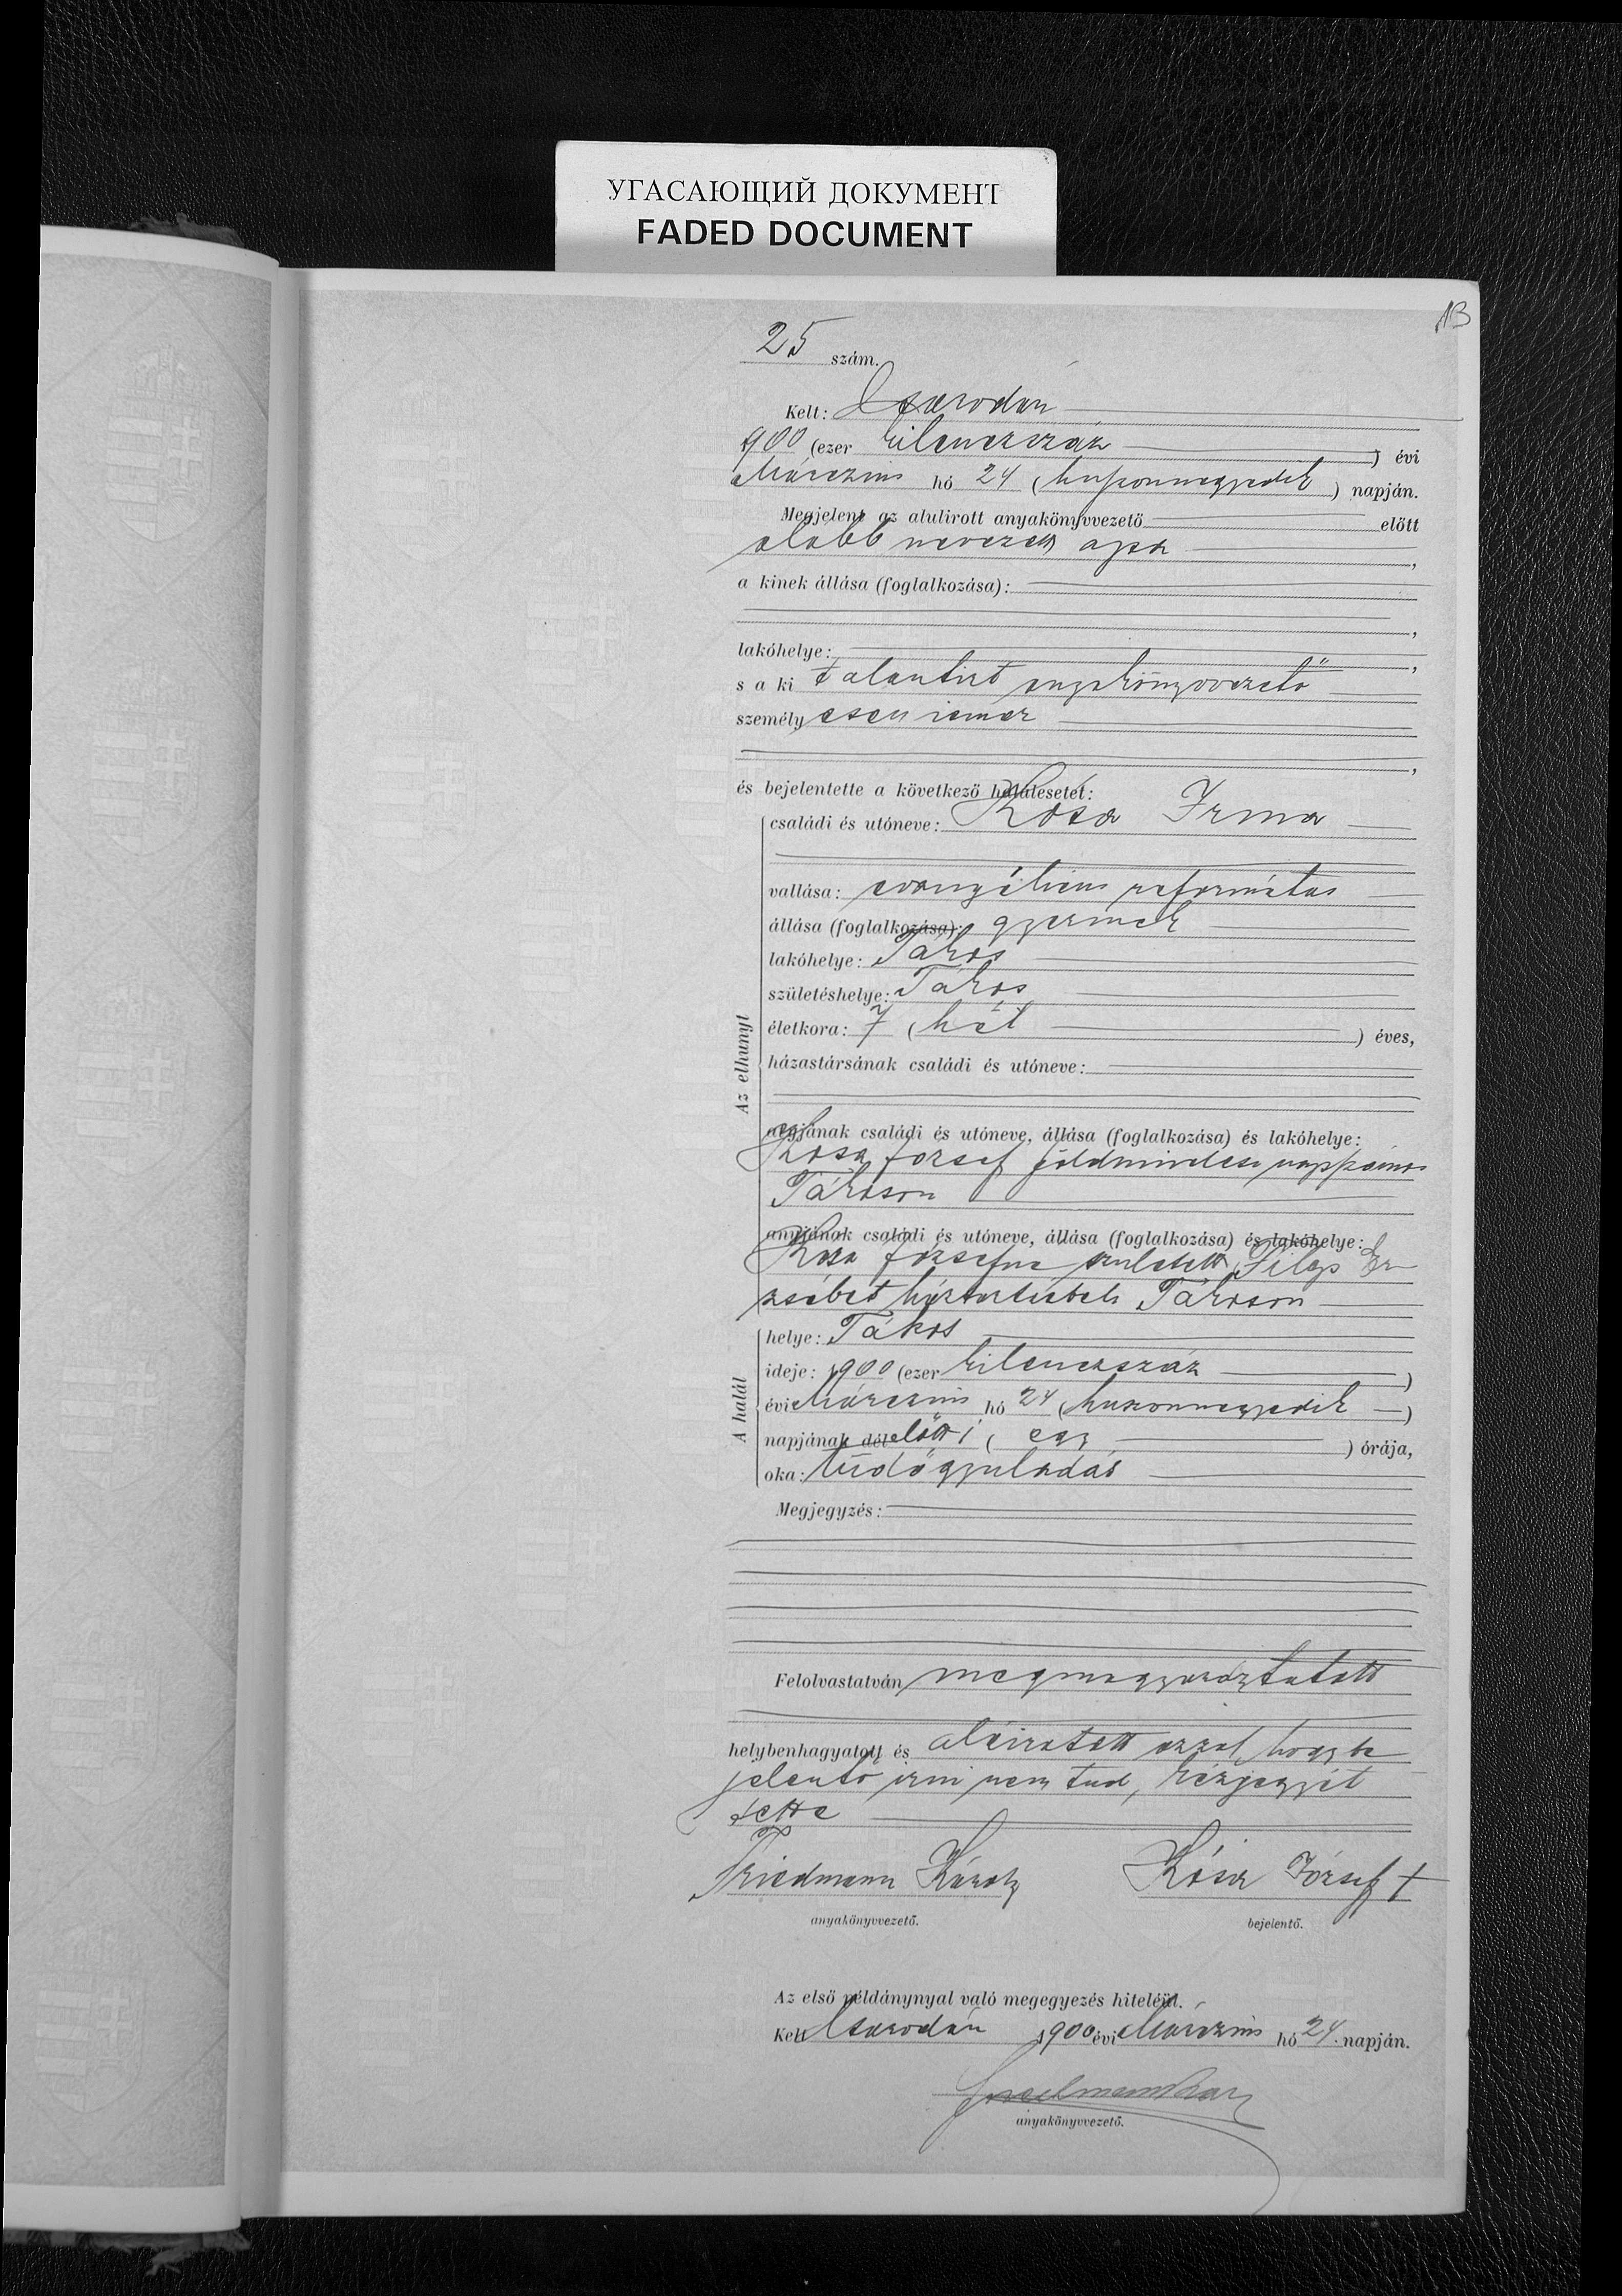 УГАСАЮЩИЙ ДОКУМЕНТ
FADED DOCUMENT
13
25 szám.
Kelt: Csarodán
1900 (ezer kilenczszáz ) évi
Márczius hó 24 (huszonnegyedik ) napján.
Megjelent az alulirott anyakönyvvezető előtt
alább nevezett apa ,
a kinek állása (foglalkozása):
,
lakóhelye: ,
s a ki t alantirt anyakönyvvezető
személyesen ismer
,
és bejelentette a következő halálesetet:
családi és utóneve: Kósa Irma
vallása: evangélicus református
állása (foglalkozása): gyermek
lakóhelye: Tákos
születéshelye: Tákos
életkora: 7 (hét ) éves,
házastársának családi és utóneve:
Az elhunyt
atyjának családi és utóneve, állása (foglalkozása) és lakóhelye:
Kósa József földmivelési napszámos
Tákoson
anyjának családi és utóneve, állása (foglalkozása) és lakóhelye:
Kósa Józsefne született Filep Er
zsébet háztartásbeli Tákoson
A halál
helye: Tákos
ideje: 1900 (ezer kilenczszáz )
évi Márczius hó 24 (huszonnegyedik )
napjának délelőtti ( egy ) órája,
oka: tüdőgyuladás
Megjegyzés:
Felolvastatván megmagyaráztatott
helybenhagyatott és aláiratott azzal, hogy be
jelentő irni nem tud, kézjegyét
tette
Friedmann Károly Kósa József †
anyakönyvvezető. bejelentő.
Az első példánynyal való megegyezés hiteléül.
Kelt Csarodán 1900 évi Márczius hó 24. napján.
anyakönyvvezető.